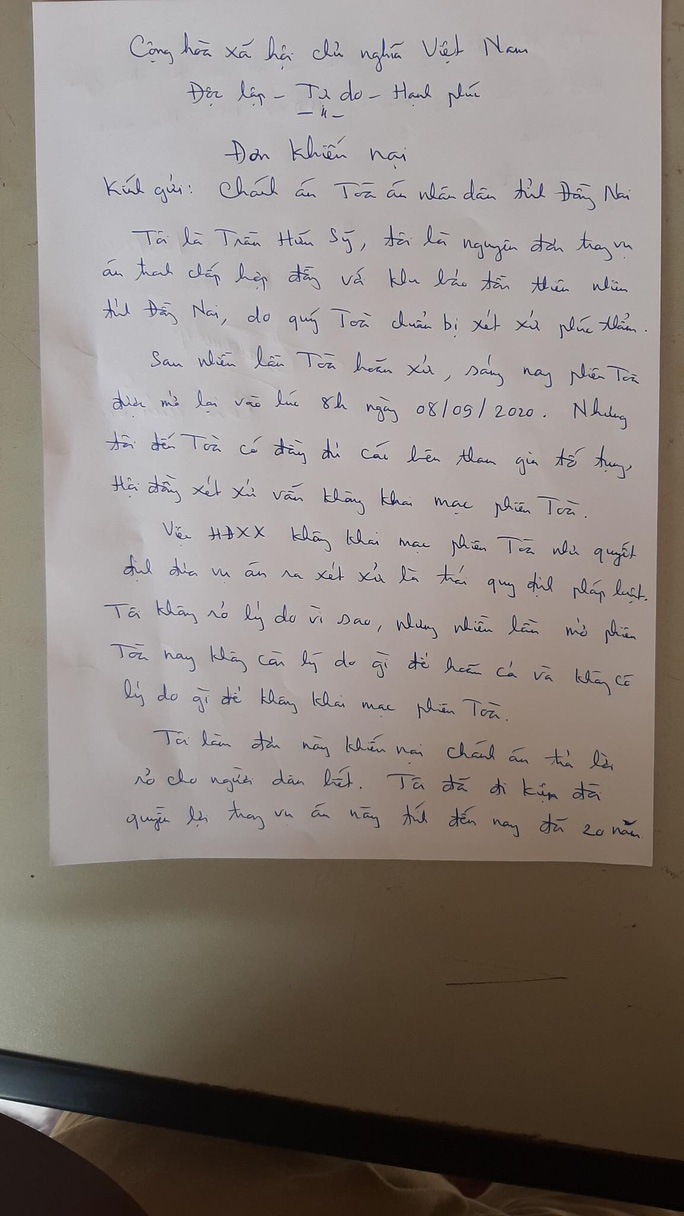 Cộng hòa xã hội chủ nghĩa Việt Nam
Độc lập - Tự do - Hạnh phúc
Đơn khiếu nại
Kính gửi: Chánh án Toà án nhân dân tỉnh Đồng Nai
Tôi là Trần Hữu Sỹ, tôi là nguyên đơn trong vụ
án tranh chấp hợp đồng với khu bảo tồn thiên nhiên
tỉnh Đồng Nai, do quý Toà chuẩn bị xét xử phúc thẩm.
Sau nhiều lần Toà hoãn xử, sáng nay phiên Toà
được mở lại vào lúc 8h ngày 08/09/2020. Nhưng
tôi đến Toà có đầy đủ các bên tham gia tố tụng,
Hội đồng xét xử vẫn không khai mạc phiên Toà.
Việc HĐXX không khai mạc phiên Toà như quyết
định đưa vụ án ra xét xử là trái quy định pháp luật.
Tôi không rõ lý do vì sao, nhưng nhiều lần mở phiên
Toà nay không còn lý do gì để hoãn cả và không có
lý do gì để không khai mạc phiên Toà.
Tôi làm đơn này khiếu nại chánh án trả lời
rõ cho người dân biết. Tôi đã đi kiện đòi
quyền lợi trong vụ án này tính đến nay đã 20 năm